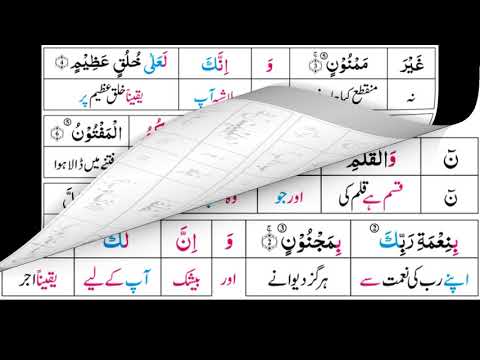 غَيْرَ مَمْنُوْنٍ ③ وَ اِنَّكَ لَعَلٰى خُلُقٍ عَظِيْمٍ ④
نہ منقطع کیا آپ یقیناً خلق عظیم پر
الْمَفْتُوْنُ ⑥
فتنے میں ڈالا ہوا
نٓ وَالْقَلَمِ
نٓ قسم ہے قلم کی اور جو وہ
بِنِعْمَةِ رَبِّكَ بِمَجْنُوْنٍ ② وَ اِنَّ لَكَ
اپنے رب کی نعمت سے ہرگز دیوانے اور بیشک آپ کے لیے یقیناً اجر